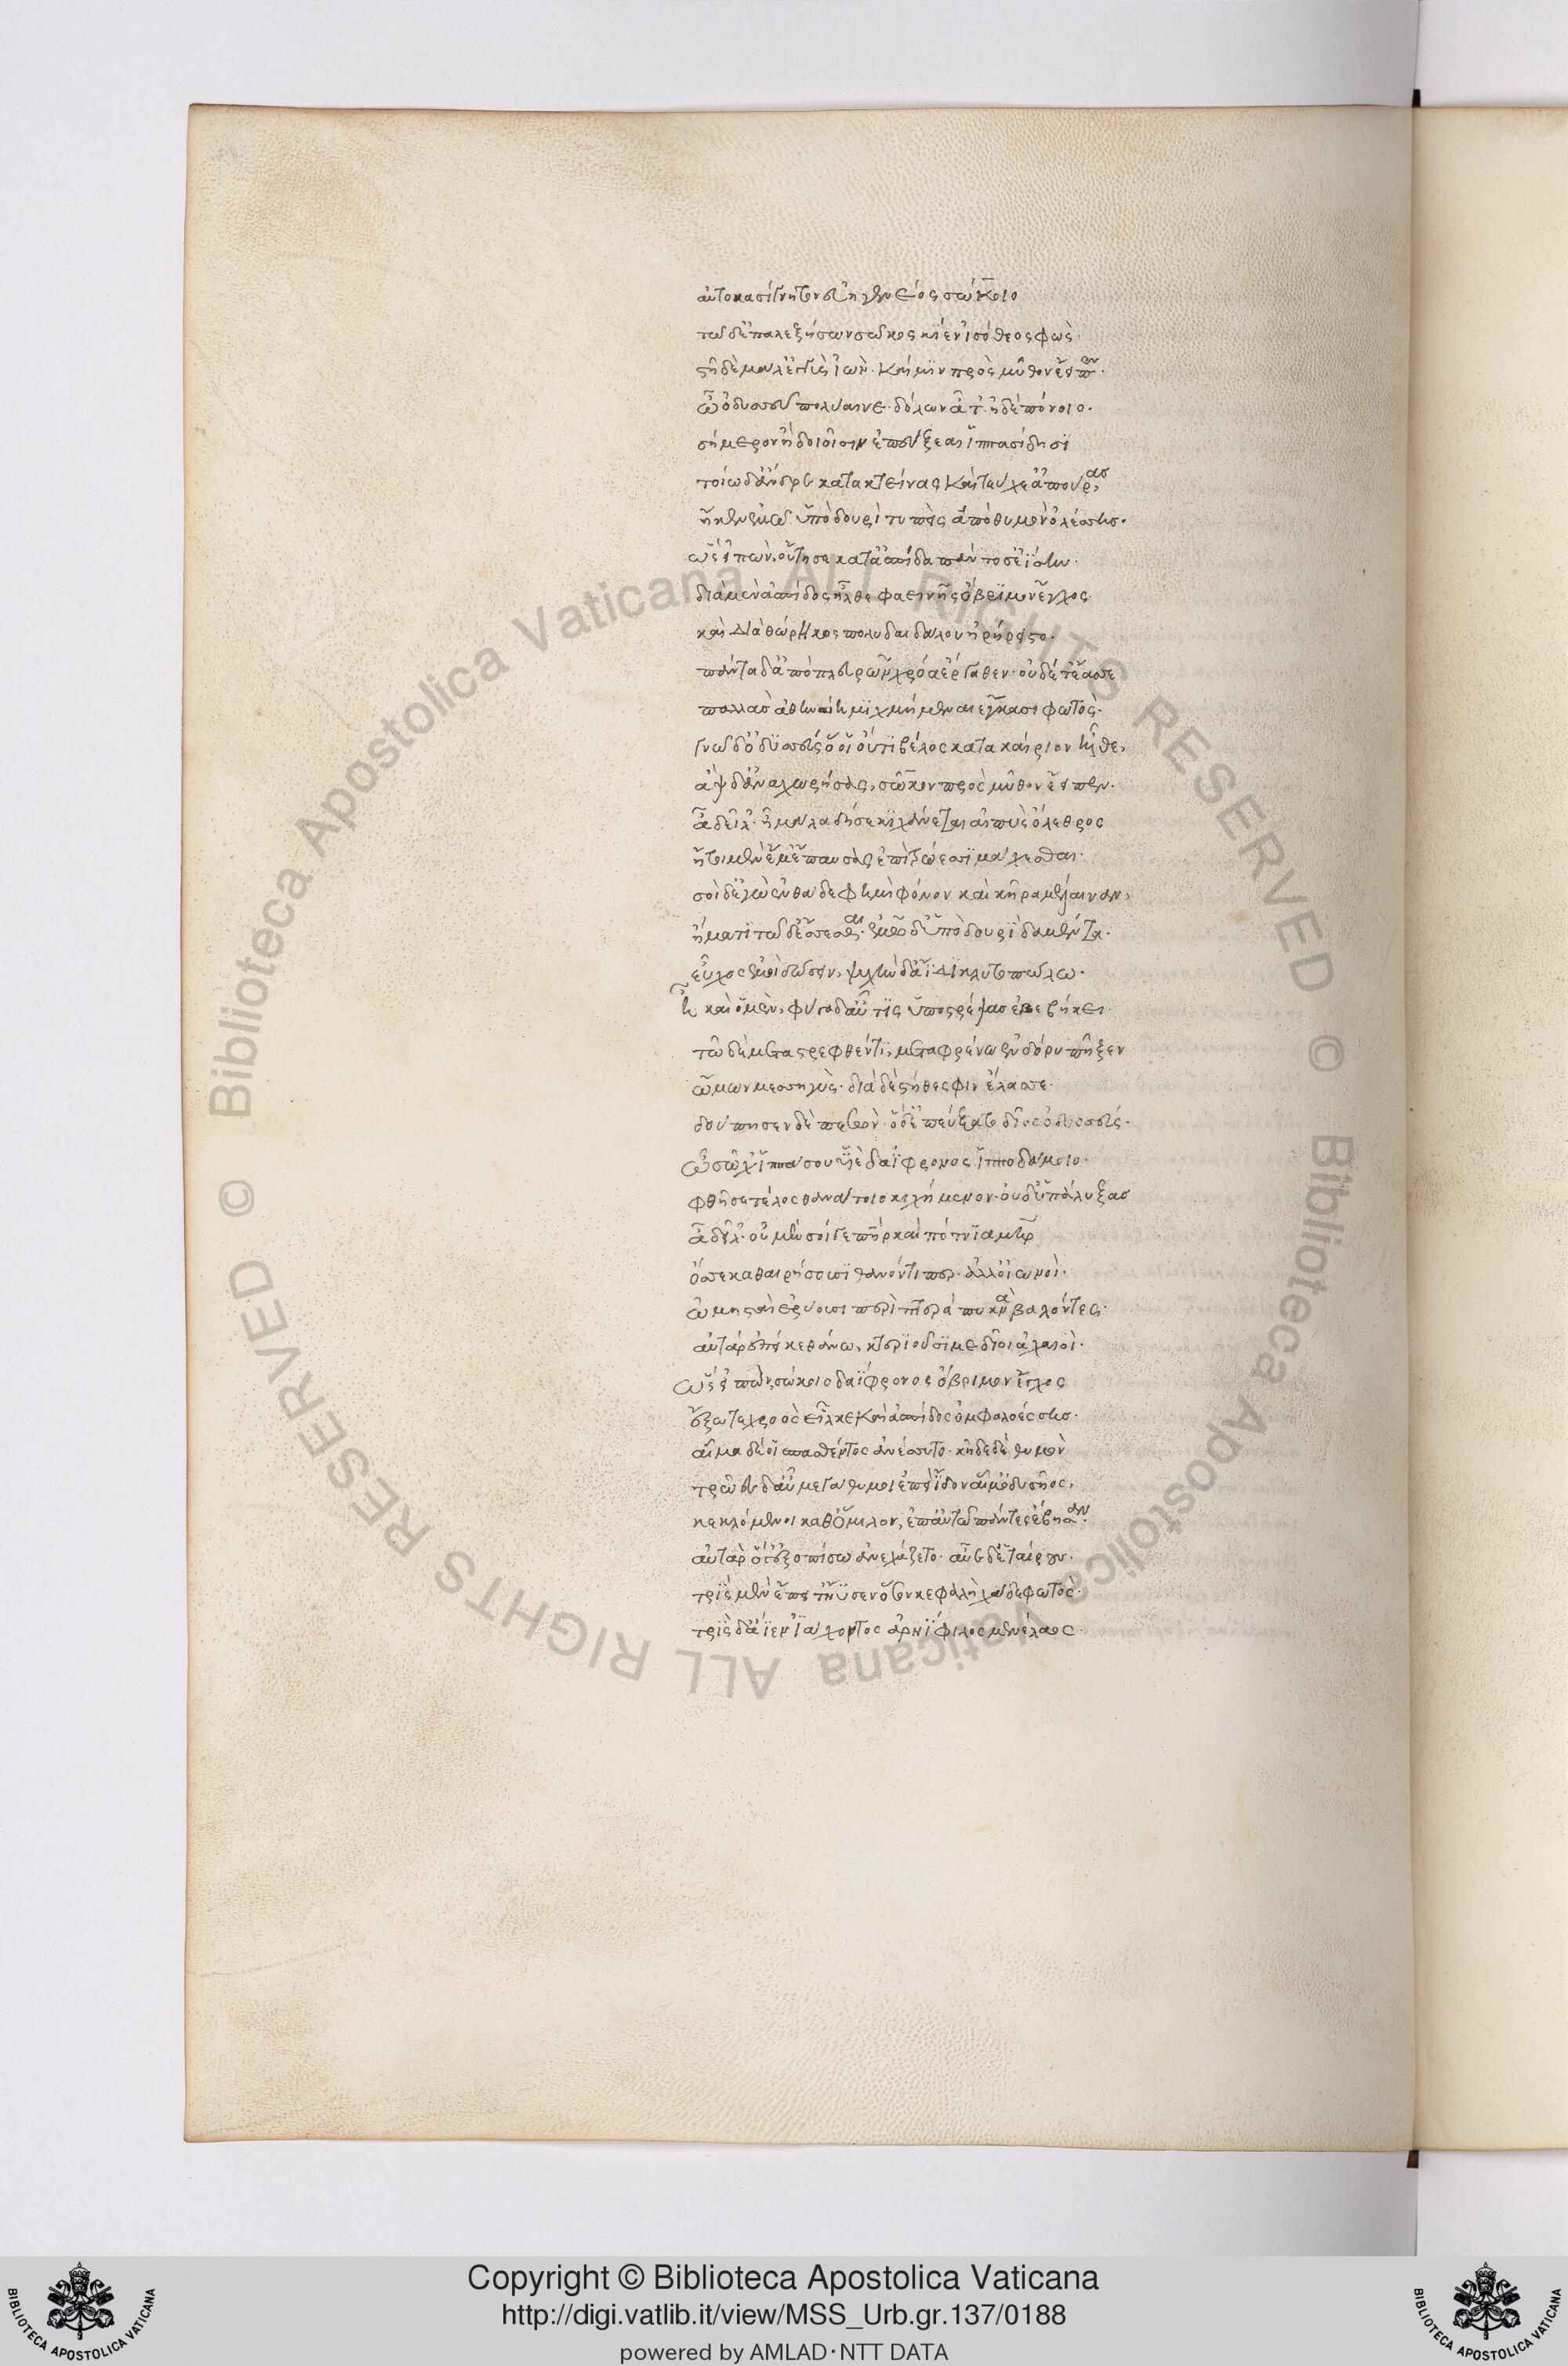 αὐτοκασίγνητον εὐηγενέος σώκοιο
τῷ δ' ἐπαλεξήσων σῶκος κίεν ἰσόθεος φώς·
στῆ δὲ μάλ' ἐγγὺς ἰὼν· καί μιν πρὸς μῦθον ἔειπεν·
ὦ ὀδυσσεῦ πολύαινε· δόλων ἆτ' ἠδὲ πόνοιο·
σήμερον ἢ δοιοῖσιν ἐπεύξεαι ἱππασίδησι
τοίωδ' ἄνδρε κατακτείνας καὶ τεύχε' ἀπούρας
ἤ κεν ἐμῷ ὑπὸ δουρὶ τυπεὶς ἀπὸ θυμὸν ὀλέσσης·
ὣς εἰπὼν, οὔτησε κατ' ἀσπίδα πάντοσ' ἐΐσην·
διὰ μὲν ἀσπίδος ἦλθε φαεινῆς ὄβριμον ἔγχος
καὶ διὰ θώρηκος πολυδαιδάλου ἠρήρειστο·
πάντα δ' ἀπὸ πλευρῶν χρόα ἔργαθεν· οὐδέ τ' ἔασε
παλλὰσ ἀθηναίη μιχθήμεναι ἔγκασι φωτὸς·
γνῶ δ' ὀδυσσεὺς ὅ οἱ οὔτι βέλος κατακαίριον ἦλθε,
ἂψ δ' ἀναχωρήσας, σῶκον πρὸς μῦθον ἔειπεν·
ἆ δείλ'· ἦ μάλα δή σε κιχάνεται αἰπὺς ὄλεθρος
ἤτοι μέν ἔμ' ἔπαυσας ἐπὶ τρώεσσι μάχεσθαι·
σοὶ δ' ἐγὼ ἐνθάδε φημὶ φόνον καὶ κῆρα μέλαιναν,
ἤματι τῷδ' ἔσσεσθαι· ἐμῷ δ' ὑπὸ δουρὶ δαμέντα·
εὖχος ἐμοὶ δώσειν, ψυχὴν δ' ἄϊδι κλυτοπώλω·
ἦ καὶ ὁ μὲν, φύγαδ' αὖτις ὑποστρέψασ ἐβεβήκει·
τῷ δὲ μεταστρεφθέντι, μεταφρένω ἐν δόρυ πῆξεν
ὤμων μεσσηγὺς· διὰ δὲ στήθεσφιν ἔλασσε·
δούπησεν δὲ πεσὼν· ὅδ' ἐπεύξατο δῖος ὀδυσσεύς·
ὦ σῶχ' ἱππάσου υἱὲ δαΐφρονος ἱπποδάμοιο·
φθῆ σε τέλος θανάτοιο κιχήμενον· οὐδ' ὑπάλυξασ
ἆ δείλ'· οὐ μὲν σοί γε πατὴρ καὶ πότνια μήτηρ
ὄσσε καθαιρήσουσι θανόντι περ· ἀλλ' οἰωνοὶ·
ὠμησταὶ ἐρύουσι περὶ πτερὰ πυκνὰ βαλόντες·
αὐτὰρ ἐπεί κε θάνω, κτεριοῦσί με δῖοι ἀχαιοὶ·
ὣς εἰπὼν, σώκοιο δαΐφρονος ὄβριμον ἔγχος
ἔξω τε χροὸς εἷλκε καὶ ἀσπίδος ὀμφαλοέσσησ·
αἷμα δέ οἱ σπασθέντος ἀνέσσυτο· κῆδε δὲ θυμὸν
τρῶες δ' αὖ μεγάθυμοι ἐπεὶ ἴδον αἷμ' ὀδυσῆος,
κεκλόμενοι καθ' ὅμιλον, ἐπ' αὐτῷ πάντες ἔβησαν·
αὐτὰρ ὅ γ' ἐξοπίσω ἀνεχάζετο· αὖε δ' ἑταίρους·
τρὶς μὲν ἔπειτ' ἤϋσεν ὅσον κεφαλὴ χάδε φωτὸς·
τρὶς δ' ἄϊεν ἰάχοντος ἀρηΐφιλος μενέλαος·
Copyright © Biblioteca Apostolica Vaticana
http://digi.vatlib.it/view/MSS_Urb.gr.137/0188
powered by AMLAD·NTT DATA